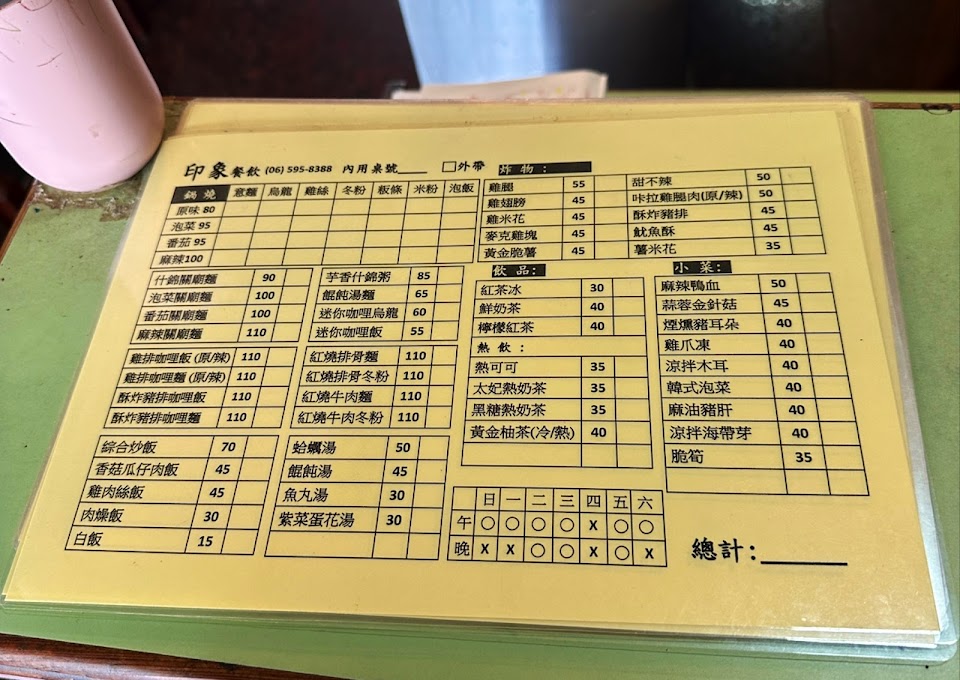 印象餐飲 (06) 595-8388 內用桌號____ □外帶
鍋燒 意麵 烏龍 雞絲 冬粉 粄條 米粉 泡飯
原味 80
泡菜 95
番茄 95
麻辣100
什錦關廟麵 90
泡菜關廟麵 100
番茄關廟麵 100
麻辣關廟麵 110
雞排咖哩飯 (原/辣) 110
雞排咖哩麵 (原/辣) 110
酥炸豬排咖哩飯 110
酥炸豬排咖哩麵 110
綜合炒飯 70
香菇瓜仔肉飯 45
雞肉絲飯 45
肉燥飯 30
白飯 15
芋香什錦粥 85
餛飩湯麵 65
迷你咖哩烏龍 60
迷你咖哩飯 55
紅燒排骨麵 110
紅燒排骨冬粉 110
紅燒牛肉麵 110
紅燒牛肉冬粉 110
蛤蠣湯 50
餛飩湯 45
魚丸湯 30
紫菜蛋花湯 30
炸物:
雞腿 55
雞翅膀 45
雞米花 45
麥克雞塊 45
黃金脆薯 45
甜不辣 50
咔拉雞腿肉(原/辣) 50
酥炸豬排 45
魷魚酥 45
薯米花 35
飲品:
紅茶冰 30
鮮奶茶 40
檸檬紅茶 40
熱飲:
熱可可 35
太妃熱奶茶 35
黑糖熱奶茶 35
黃金柚茶(冷/熱) 40
小菜:
麻辣鴨血 50
蒜蓉金針菇 45
煙燻豬耳朵 40
雞爪凍 40
涼拌木耳 40
韓式泡菜 40
麻油豬肝 40
涼拌海帶芽 40
脆筍 35
日 一 二 三 四 五 六
午 ○ ○ ○ ○ X ○ ○
晚 X X ○ ○ X ○ X
總計:______